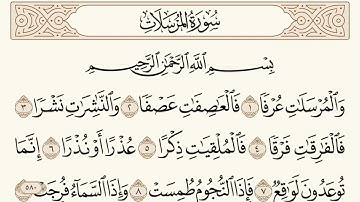 سُورَةُ المُرْسَلَات
بِسْمِ اللَّهِ الرَّحْمَٰنِ الرَّحِيمِ
وَالْمُرْسَلَاتِ عُرْفًا ١ فَالْعَاصِفَاتِ عَصْفًا ٢ وَالنَّاشِرَاتِ نَشْرًا ٣
فَالْفَارِقَاتِ فَرْقًا ٤ فَالْمُلْقِيَاتِ ذِكْرًا ٥ عُذْرًا أَوْ نُذْرًا ٦ إِنَّمَا
تُوعَدُونَ لَوَاقِعٌ ٧ فَإِذَا النُّجُومُ طُمِسَتْ ٨ وَإِذَا السَّمَاءُ فُرِجَتْ
٥٨٠